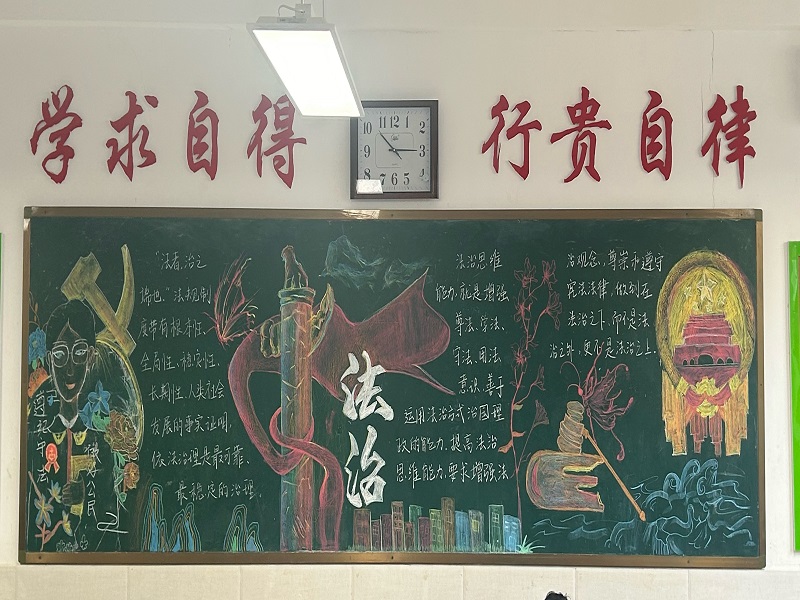 学求自得
行贵自律
12
1
2
3
4
5
6
7
8
9
10
11
遵纪守法
做好公民
“法者,治之
端也。”法规制
度带有根本性、
全局性、稳定性、
长期性。人类社会
发展的事实证明,
依法治理是最可靠、
最稳定的治理。
法治
法治思维
能力,就是增强
尊法、学法、
守法、用法
意识,善于
运用法治方式治国理
政的能力。提高法治
思维能力,要求增强法
治观念,尊崇和遵守
宪法法律,做到在
法治之下,而不是法
治之外,更不是法治之上。